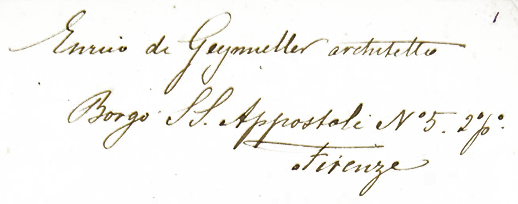 1
Enrico de Geymüller architetto
Borgo SS. Appostoli N° 5. 2° p°.
Firenze